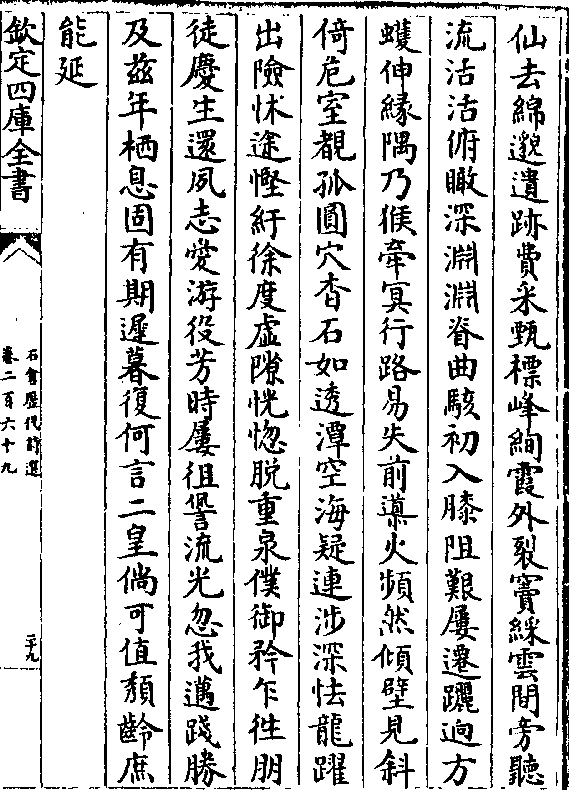 仙去綿邈遺跡費采甄標峰絢霞外裂竇綵雲間旁聽
流沽沽俯瞰深淵淵脊曲駭初入膝阻艱屢遷躧迥方
蠖伸縁隅乃猴牽冥行路易失前導火頻然傾壁見斜
倚危室覩孤圓穴杳石如透潭空海疑連涉深怯龍躍
出險怵途慳紆徐度虛隙恍惚脱重泉僕御矜乍徃朋
徒慶生還夙志愛游役芳時屢徂諐流光忽我邁踐勝
及兹年栖息固有期遲暮復何言二皇倘可值頽齡庶
能延
欽定四庫全書
石倉歴代詩選
卷二百六十九
二十九